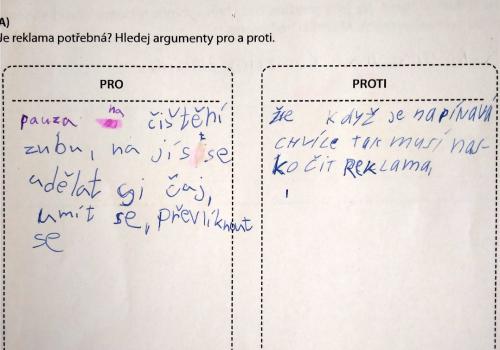 A)
Je reklama potřebná? Hledej argumenty pro a proti.
PRO
pauza na čištění
zubu, na jíst se
udělat si čaj,
umít se, převlíknout
se
PROTI
že když je napínavá
chvíle tak musí nas-
kočit REKlama,